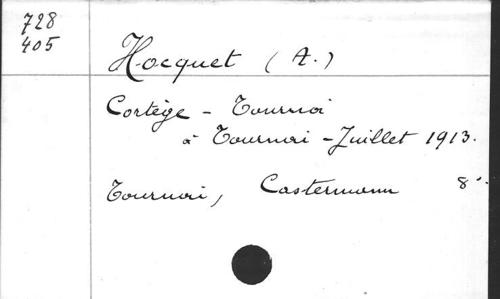 728
405
Hocquet (A.)
Cortège - Tournoi
à Tournai - Juillet 1913.
Tournai, Castermann 8°.